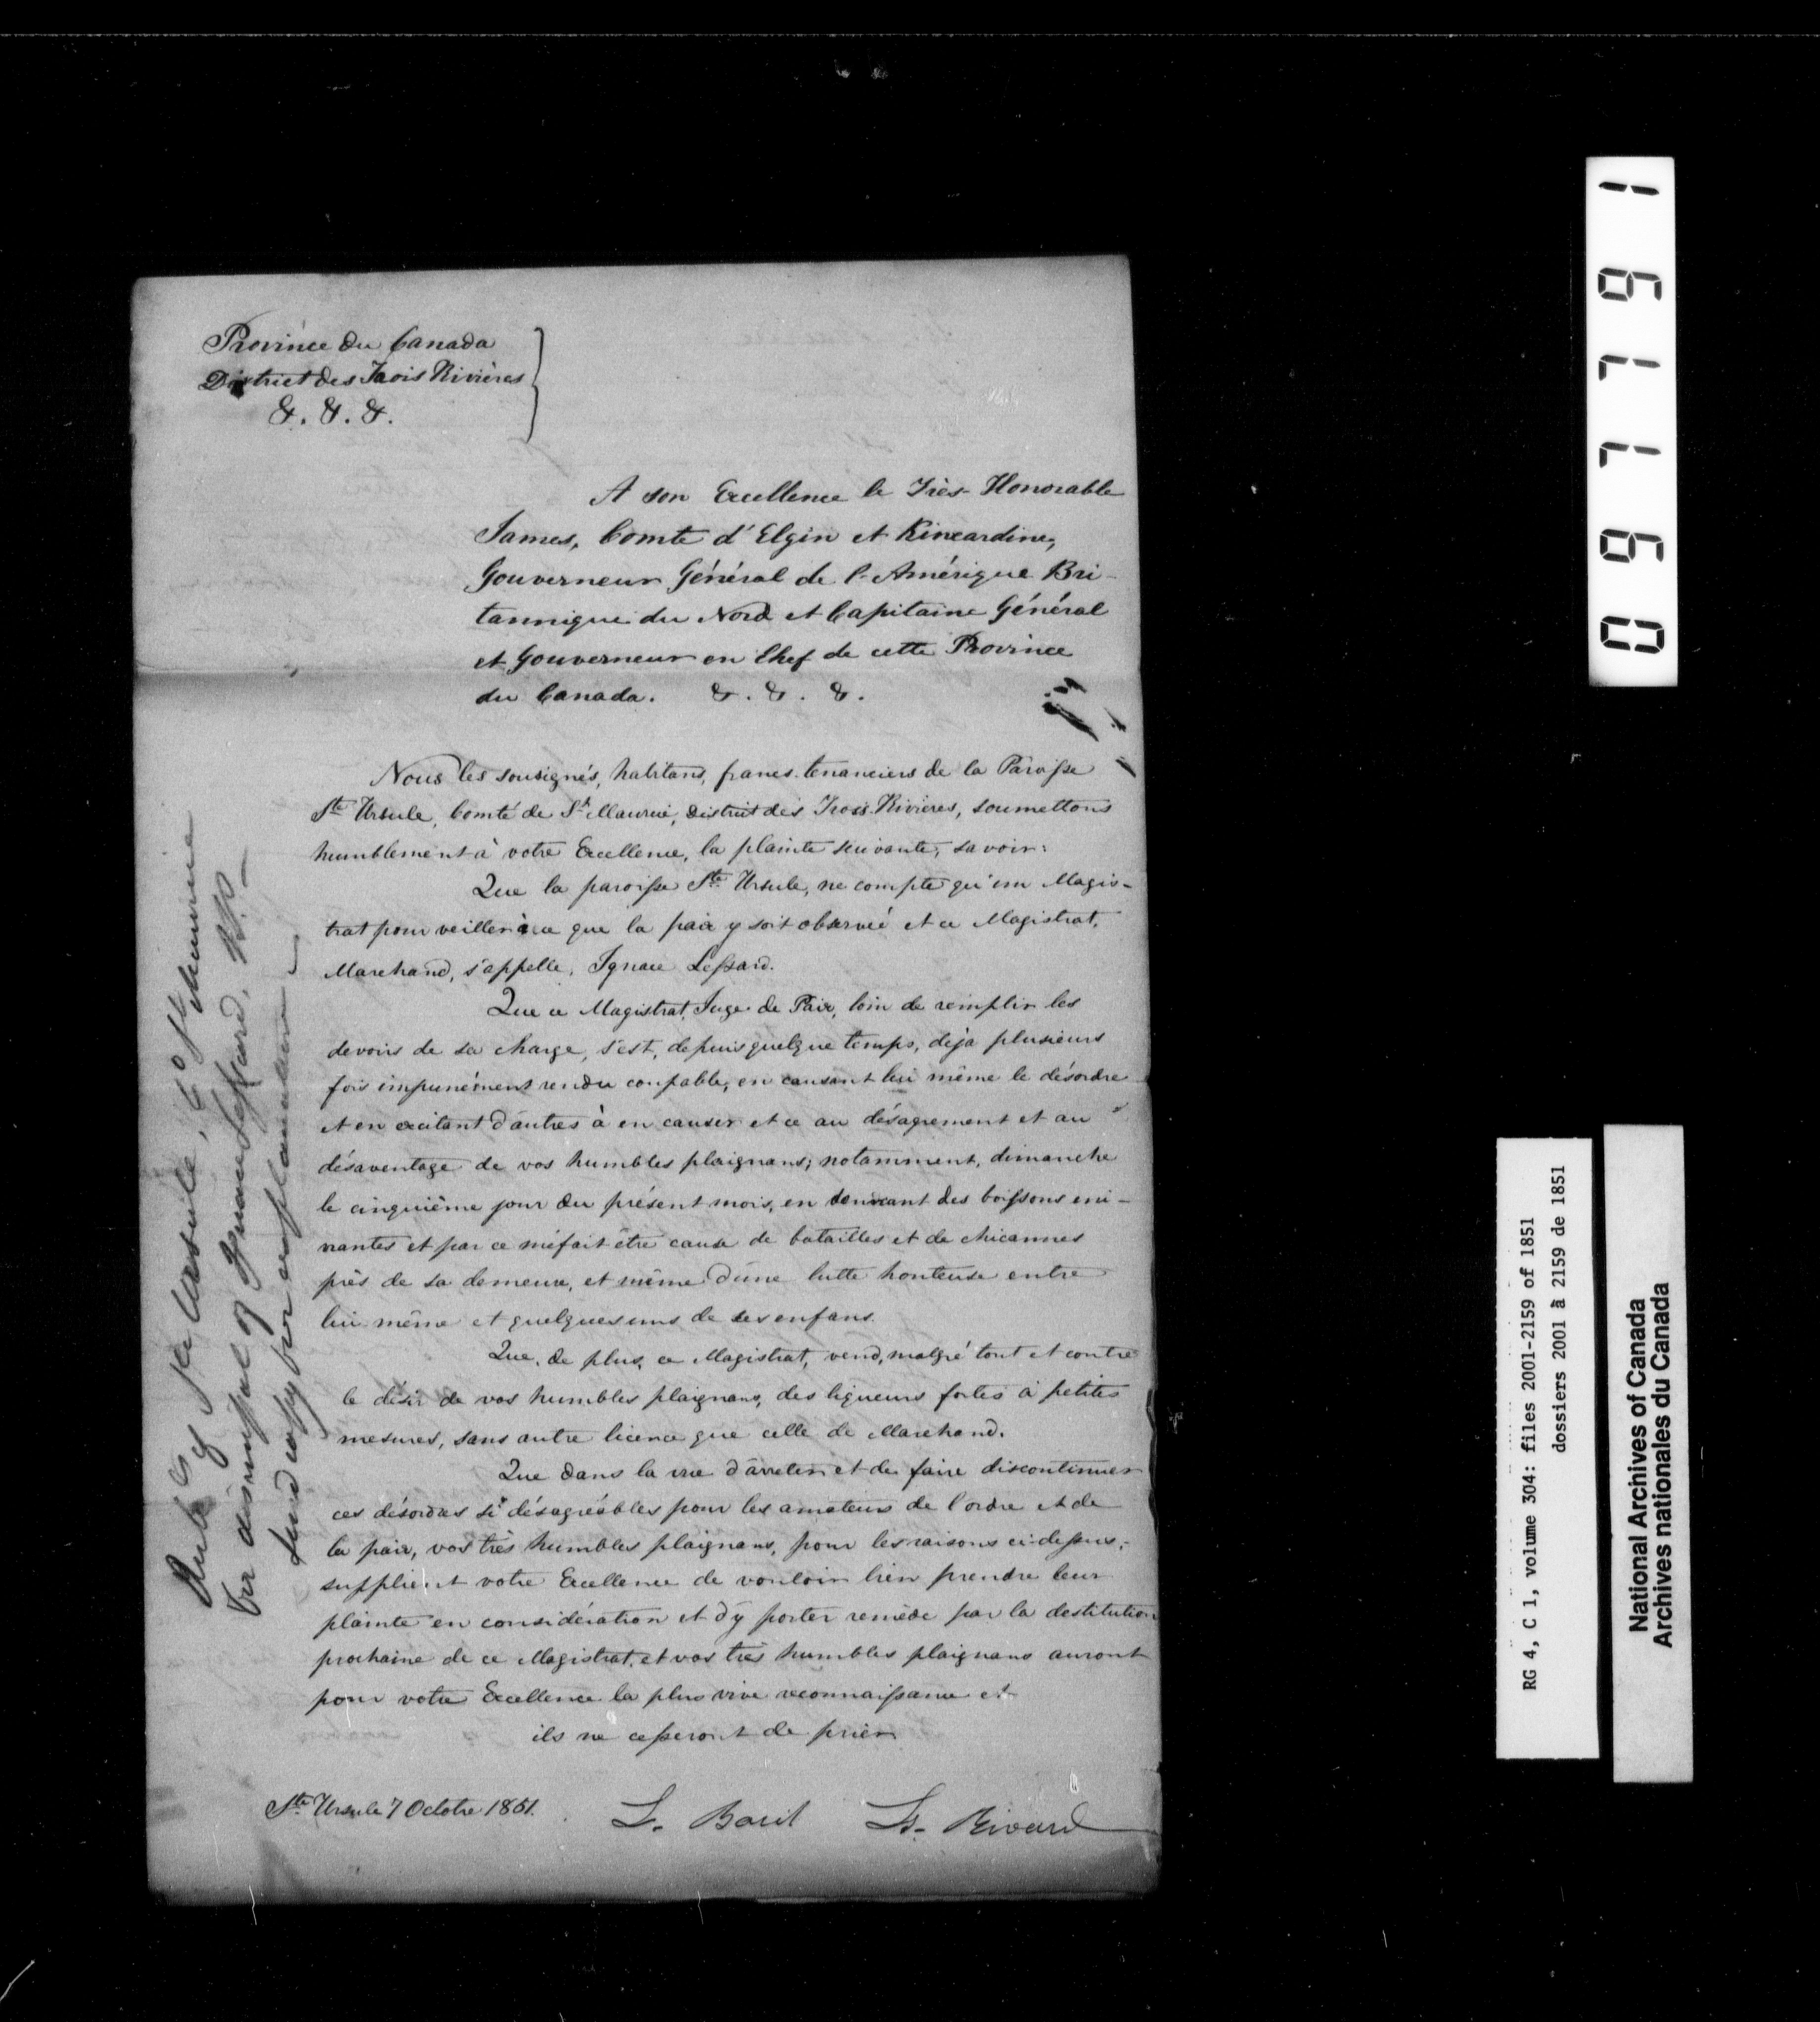 Province du Canada
District des Trois Rivières
&. &. &.
A son Excellence le Très-Honorable
James, Comte d'Elgin et Kincardine,
Gouverneur Général de l'Amérique Bri-
tannique du Nord et Capitaine Général
et Gouverneur en Chef de cette Province
du Canada. &. &. &.
Nous les sousignés, habitans, francs-tenanciers de la Paroisse
Ste Ursule, Comté de St Maurice, District des Trois-Rivières, soumettons
humblement à votre Excellence, la plainte suivante, savoir:
Que la paroisse Ste Ursule, ne compte qu'un Magis-
trat pour veiller à ce que la paix y soit observée et ce Magistrat,
Marchand, s'appelle, Ignace Lessard.
Que ce Magistrat, Juge de Paix, loin de remplir les
devoirs de sa charge, s'est, depuis quelque temps, déjà plusieurs
fois impunément rendu coupable, en causant lui même le désordre
et en excitant d'autres à en causer et ce au désagrement et au
désaventage de vos humbles plaignans; notamment, dimanche
le cinquième jour du présent mois, en donnant des boissons eni-
vrantes et par ce méfait être cause de batailles et de chicannes
près de sa demeure, et même d'une lutte honteuse entre
lui même et quelques uns de ses enfans.
Que, de plus, ce Magistrat, vend, malgré tout et contre
le désir de vos humbles plaignans, des liqueurs fortes à petites
mesures, sans autre licence que celle de Marchand.
Que dans la vue d'arreter et de faire discontinuer
ces désordres si désagréables pour les amateurs de l'ordre et de
la paix, vos très humbles plaignans, pour les raisons ci-dessus,
supplient votre Excellence de vouloir bien prendre leur
plainte en considération et d'y porter remède par la destitution
prochaine de ce Magistrat, et vos très humbles plaignans auront
pour votre Excellence la plus vive reconnaissance et
ils ne cesseront de prier
Ste Ursule 7 Octobre 1851.
L. Baril Ls. Rivard
of Ste Ursule, Co St Maurice
for dismissal of Ignace Lessard, J.P.
Send copy for explanation
097791
RG 4, C 1, volume 304: files 2001-2159 of 1851
dossiers 2001 à 2159 de 1851
National Archives of Canada
Archives nationales du Canada